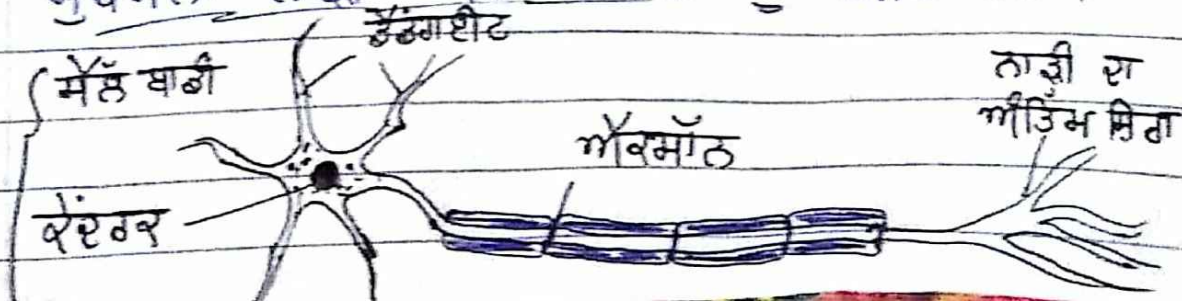 ਡੈਂਡਰਾਈਟ
ਸੈੱਲ ਬਾਡੀ
ਨਾੜੀ ਦਾ
ਅੰਤਿਮ ਸਿਰਾ
ਐਕਸਾੱਨ
ਕੇਂਦਰਕ